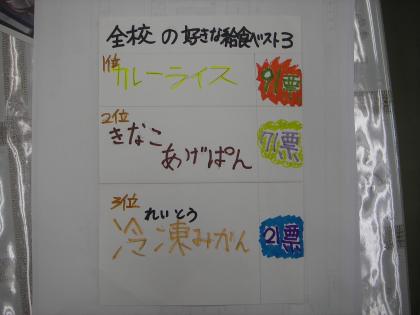 全校の好きな給食ベスト3
1位
カレーライス
91票
2位
きなこ
あげぱん
71票
3位
れいとう
冷凍みかん
21票